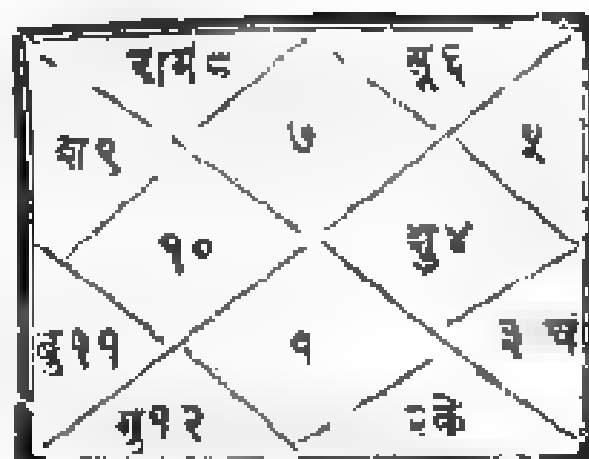 रा मं ८
सू ६
७
श ९
५
१०
शु ४
बु ११
१
३ चं
गु १२
२ के